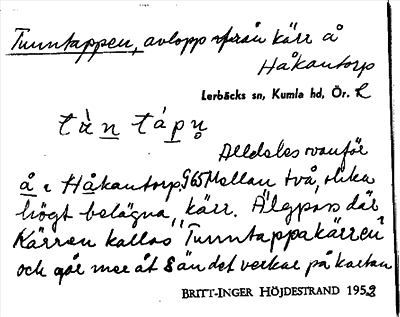 Tunntappen, avlopp från kärr å
Håkantorp
Lerbäcks sn, Kumla hd, Ör. L
tὰn tápn̥
Alldeles ovanför
å i Håkantorp, 965 Mellan två, olika
högt belägna, kärr. Älgpass där
Kärren kallas "Tunntappakärren"
och går mer åt S än det verkar på kartan
BRITT-INGER HÖJDESTRAND 1952